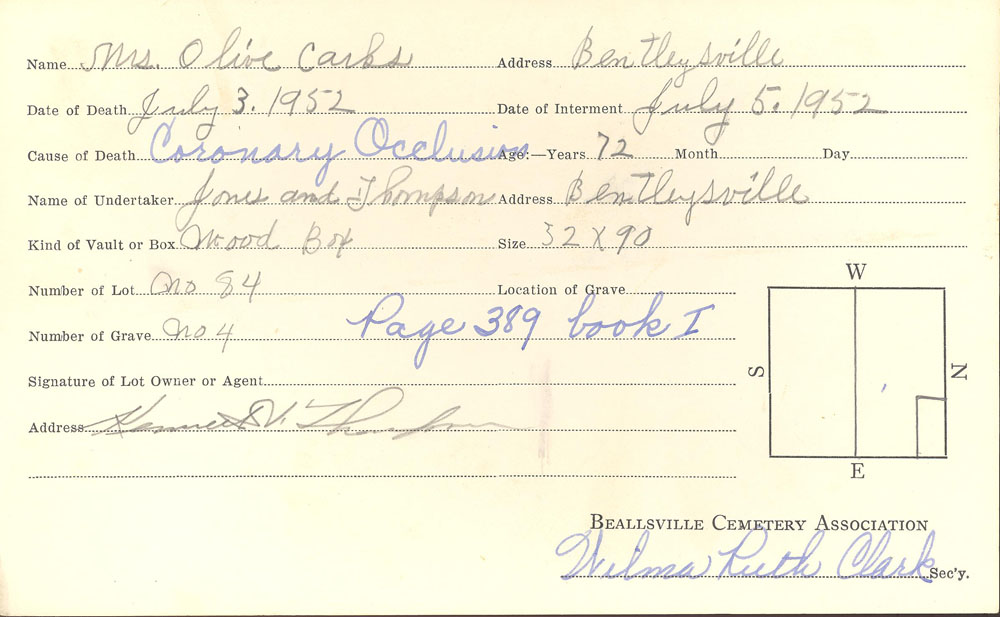 Name Mrs. Olive Carks Address Bentleysville
Date of Death July 3. 1952 Date of Interment July 5. 1952
Cause of Death Coronary Occlusion Age:—Years 72 Month Day
Name of Undertaker Jones and Thompson Address Bentleysville
Kind of Vault or Box Wood Box Size 32 X 90
Number of Lot no 84 Location of Grave
Number of Grave no 4 Page 389 book I
Signature of Lot Owner or Agent
Address Kenneth V. Thompson
W
S
N
E
BEALLSVILLE CEMETERY ASSOCIATION
Wilma Ruth Clark Sec'y.